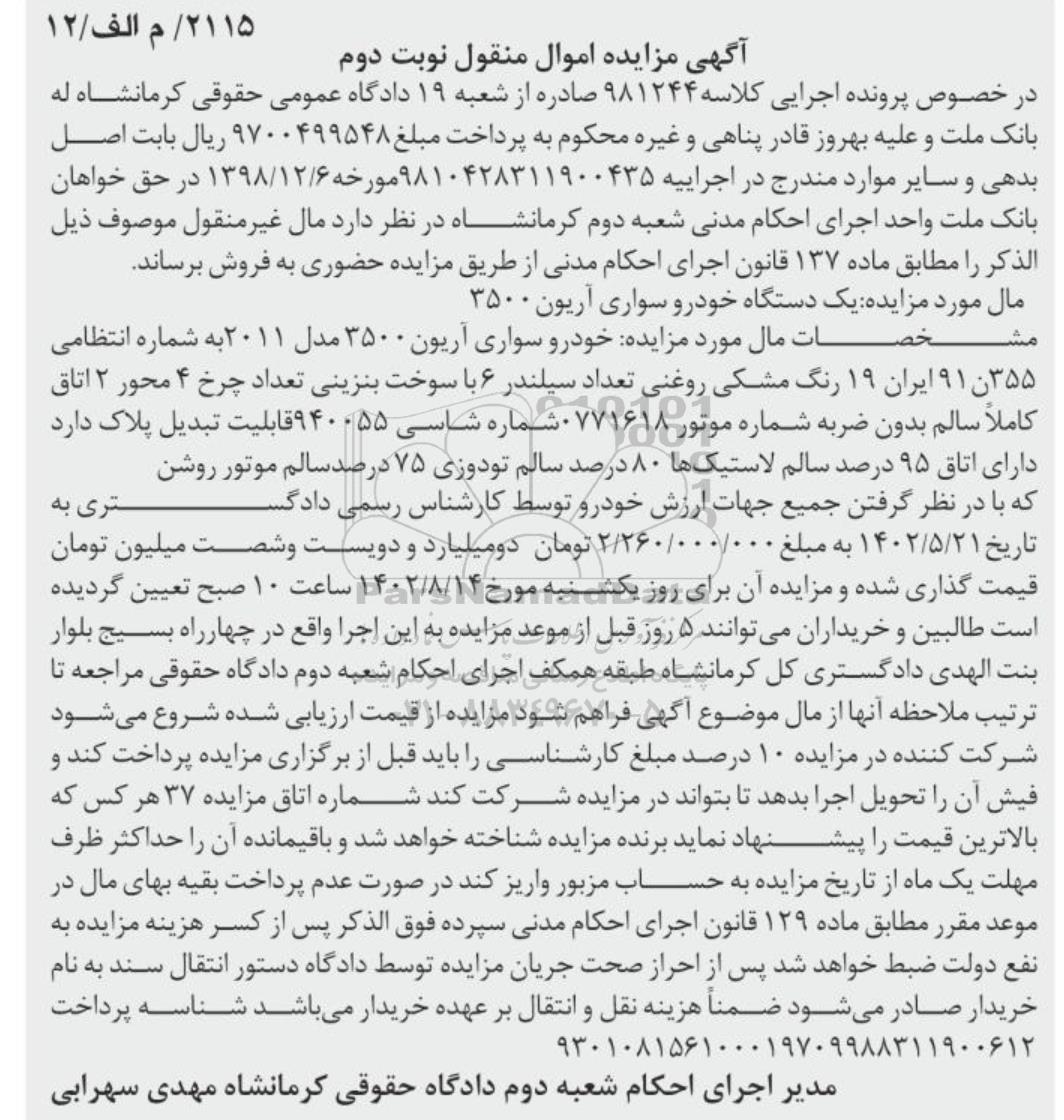 ۲۱۱۵/ م الف/۱۲
آگهی مزایده اموال منقول نوبت دوم
در خصوص پرونده اجرایی کلاسه۹۸۱۲۴۴ صادره از شعبه ۱۹ دادگاه عمومی حقوقی کرمانشاه له
بانک ملت و علیه بهروز قادر پناهی و غیره محکوم به پرداخت مبلغ۹۷۰۰۴۹۹۵۴۸ ریال بابت اصل
بدهی و سایر موارد مندرج در اجراییه ۹۸۱۰۴۲۸۳۱۱۹۰۰۴۳۵مورخه۱۳۹۸/۱۲/۶ در حق خواهان
بانک ملت واحد اجرای احکام مدنی شعبه دوم کرمانشاه در نظر دارد مال غیرمنقول موصوف ذیل
الذکر را مطابق ماده ۱۳۷ قانون اجرای احکام مدنی از طریق مزایده حضوری به فروش برساند.
مال مورد مزایده:یک دستگاه خودرو سواری آریون۳۵۰۰
مشخصات مال مورد مزایده: خودرو سواری آریون۳۵۰۰ مدل ۲۰۱۱به شماره انتظامی
۳۵۵ن۹۱ ایران ۱۹ رنگ مشکی روغنی تعداد سیلندر ۶ با سوخت بنزینی تعداد چرخ ۴ محور ۲ اتاق
کاملاً سالم بدون ضربه شماره موتور ۰۷۷۱۶۱۸شماره شاسی ۹۴۰۰۵۵قابلیت تبدیل پلاک دارد
دارای اتاق ۹۵ درصد سالم لاستیک‌ها ۸۰ درصد سالم تودوزی ۷۵ درصدسالم موتور روشن
که با در نظر گرفتن جمیع جهات ارزش خودرو توسط کارشناس رسمی دادگستری به
تاریخ۱۴۰۲/۵/۲۱ به مبلغ ۲/۲۶۰/۰۰۰/۰۰۰ تومان دومیلیارد و دویست وشصت میلیون تومان
قیمت گذاری شده و مزایده آن برای روز یکشنبه مورخ۱۴۰۲/۸/۱۴ ساعت ۱۰ صبح تعیین گردیده
است طالبین و خریداران می‌توانند ۵ روز قبل از موعد مزایده به این اجرا واقع در چهارراه بسیج بلوار
بنت الهدی دادگستری کل کرمانشاه طبقه همکف اجرای احکام شعبه دوم دادگاه حقوقی مراجعه تا
ترتیب ملاحظه آنها از مال موضوع آگهی فراهم شود مزایده از قیمت ارزیابی شده شروع می‌شود
شرکت کننده در مزایده ۱۰ درصد مبلغ کارشناسی را باید قبل از برگزاری مزایده پرداخت کند و
فیش آن را تحویل اجرا بدهد تا بتواند در مزایده شرکت کند شماره اتاق مزایده ۳۷ هر کس که
بالاترین قیمت را پیشنهاد نماید برنده مزایده شناخته خواهد شد و باقیمانده آن را حداکثر ظرف
مهلت یک ماه از تاریخ مزایده به حساب مزبور واریز کند در صورت عدم پرداخت بقیه بهای مال در
موعد مقرر مطابق ماده ۱۲۹ قانون اجرای احکام مدنی سپرده فوق الذکر پس از کسر هزینه مزایده به
نفع دولت ضبط خواهد شد پس از احراز صحت جریان مزایده توسط دادگاه دستور انتقال سند به نام
خریدار صادر می‌شود ضمناً هزینه نقل و انتقال بر عهده خریدار می‌باشد شناسه پرداخت
۹۳۰۱۰۸۱۵۶۱۰۰۰۱۹۷۰۹۹۸۸۳۱۱۹۰۰۶۱۲
مدیر اجرای احکام شعبه دوم دادگاه حقوقی کرمانشاه مهدی سهرابی